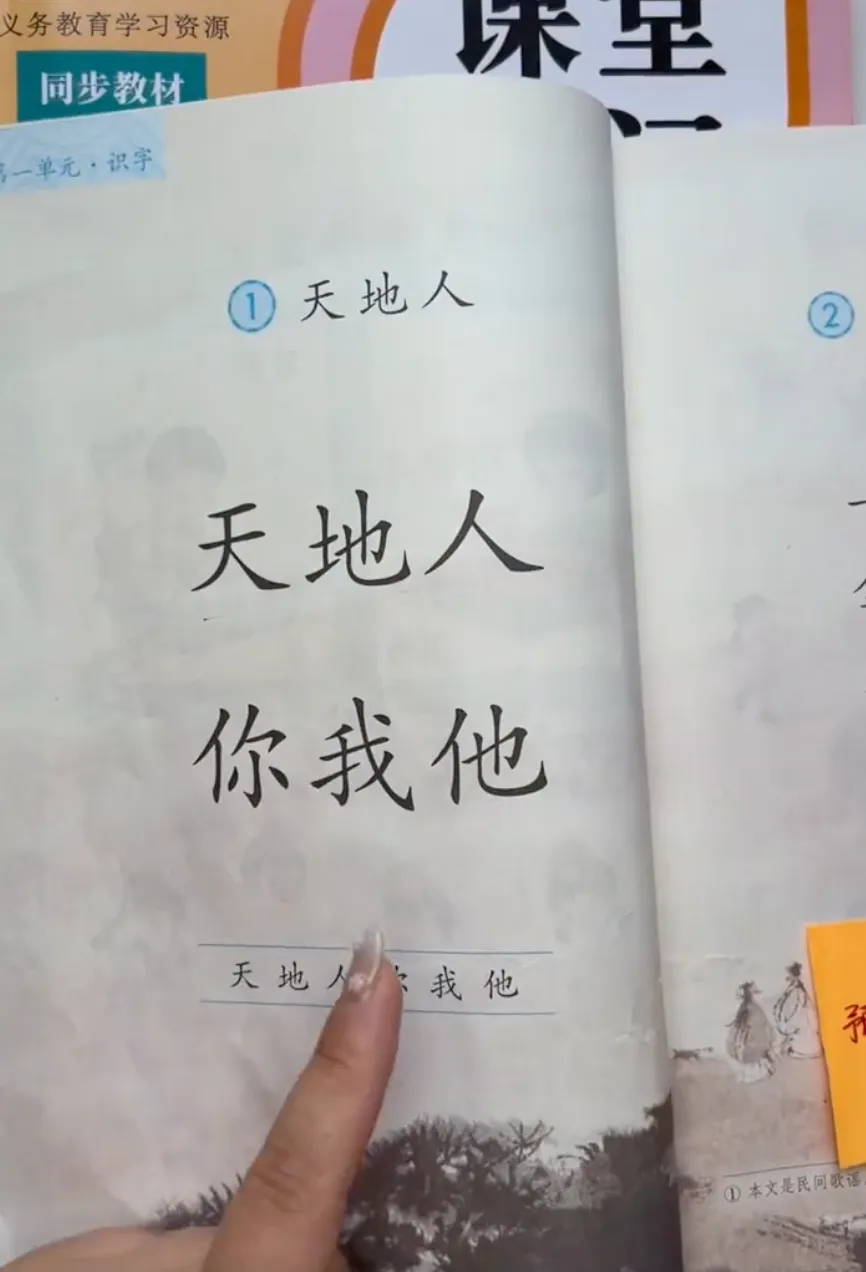 义务教育学习资源
同步教材
课堂
一单元·识字
① 天地人
天地人
你我他
天 地 人 你 我 他
②
预
① 本文是民间歌谣